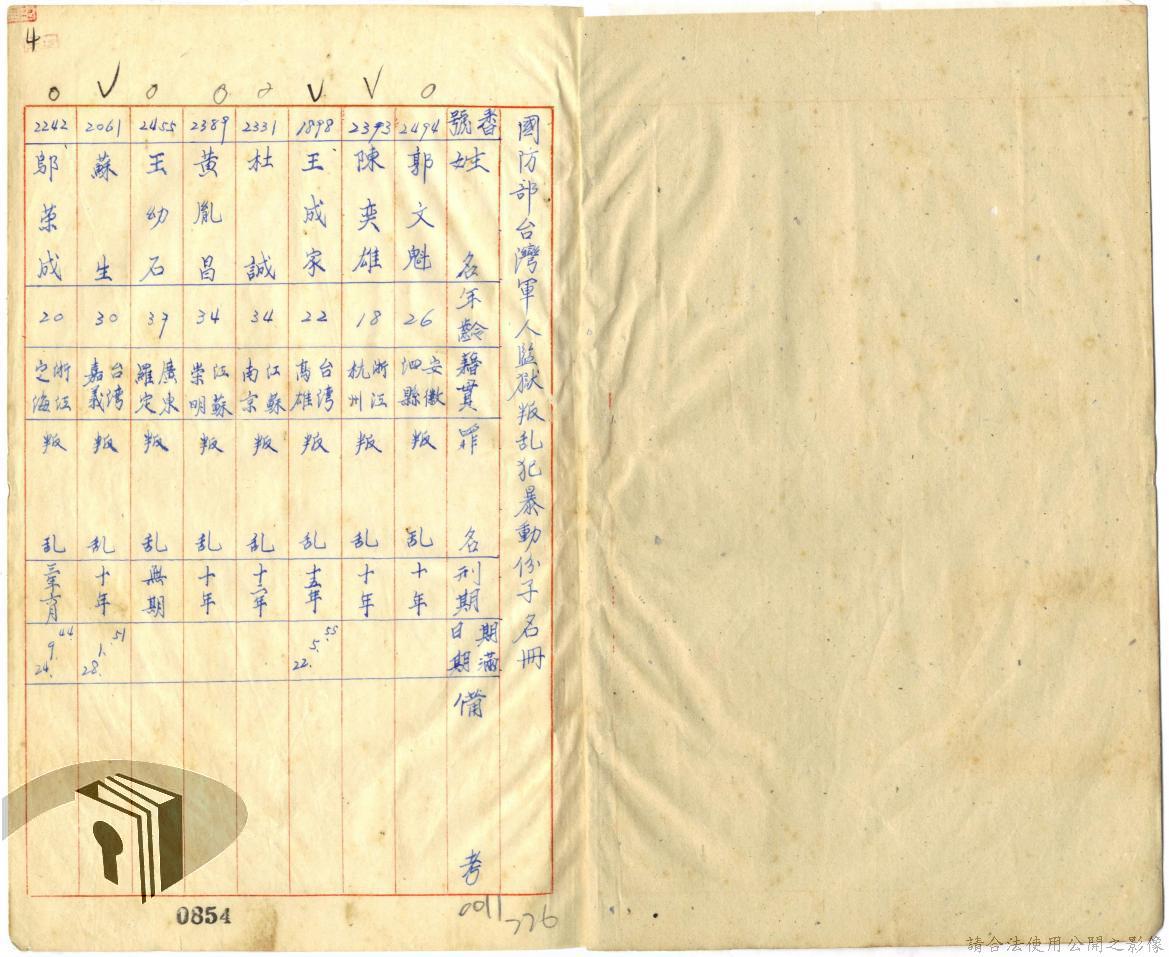 4
國防部台灣軍人監獄叛乱犯暴動份子名冊
番號 姓名 年齡 籍貫 罪名 刑期 期滿日期 備考
2494 郭文魁 26 安徽泗縣 叛乱 十年
2393 陳奕雄 18 浙江杭州 叛乱 十年
1898 王成家 22 台湾高雄 叛乱 十五年 55.5.22.
2331 杜誠 34 江蘇南京 叛乱 十六年
2389 黄胤昌 34 江蘇崇明 叛乱 十年
2455 王幼石 37 廣東羅定 叛乱 無期
2061 蘇生 30 台湾嘉義 叛乱 十年 51.1.28.
2242 鄔荣成 20 浙江定海 叛乱 三年六月 44.9.24.
0854
0011
776
請合法使用公開之影像